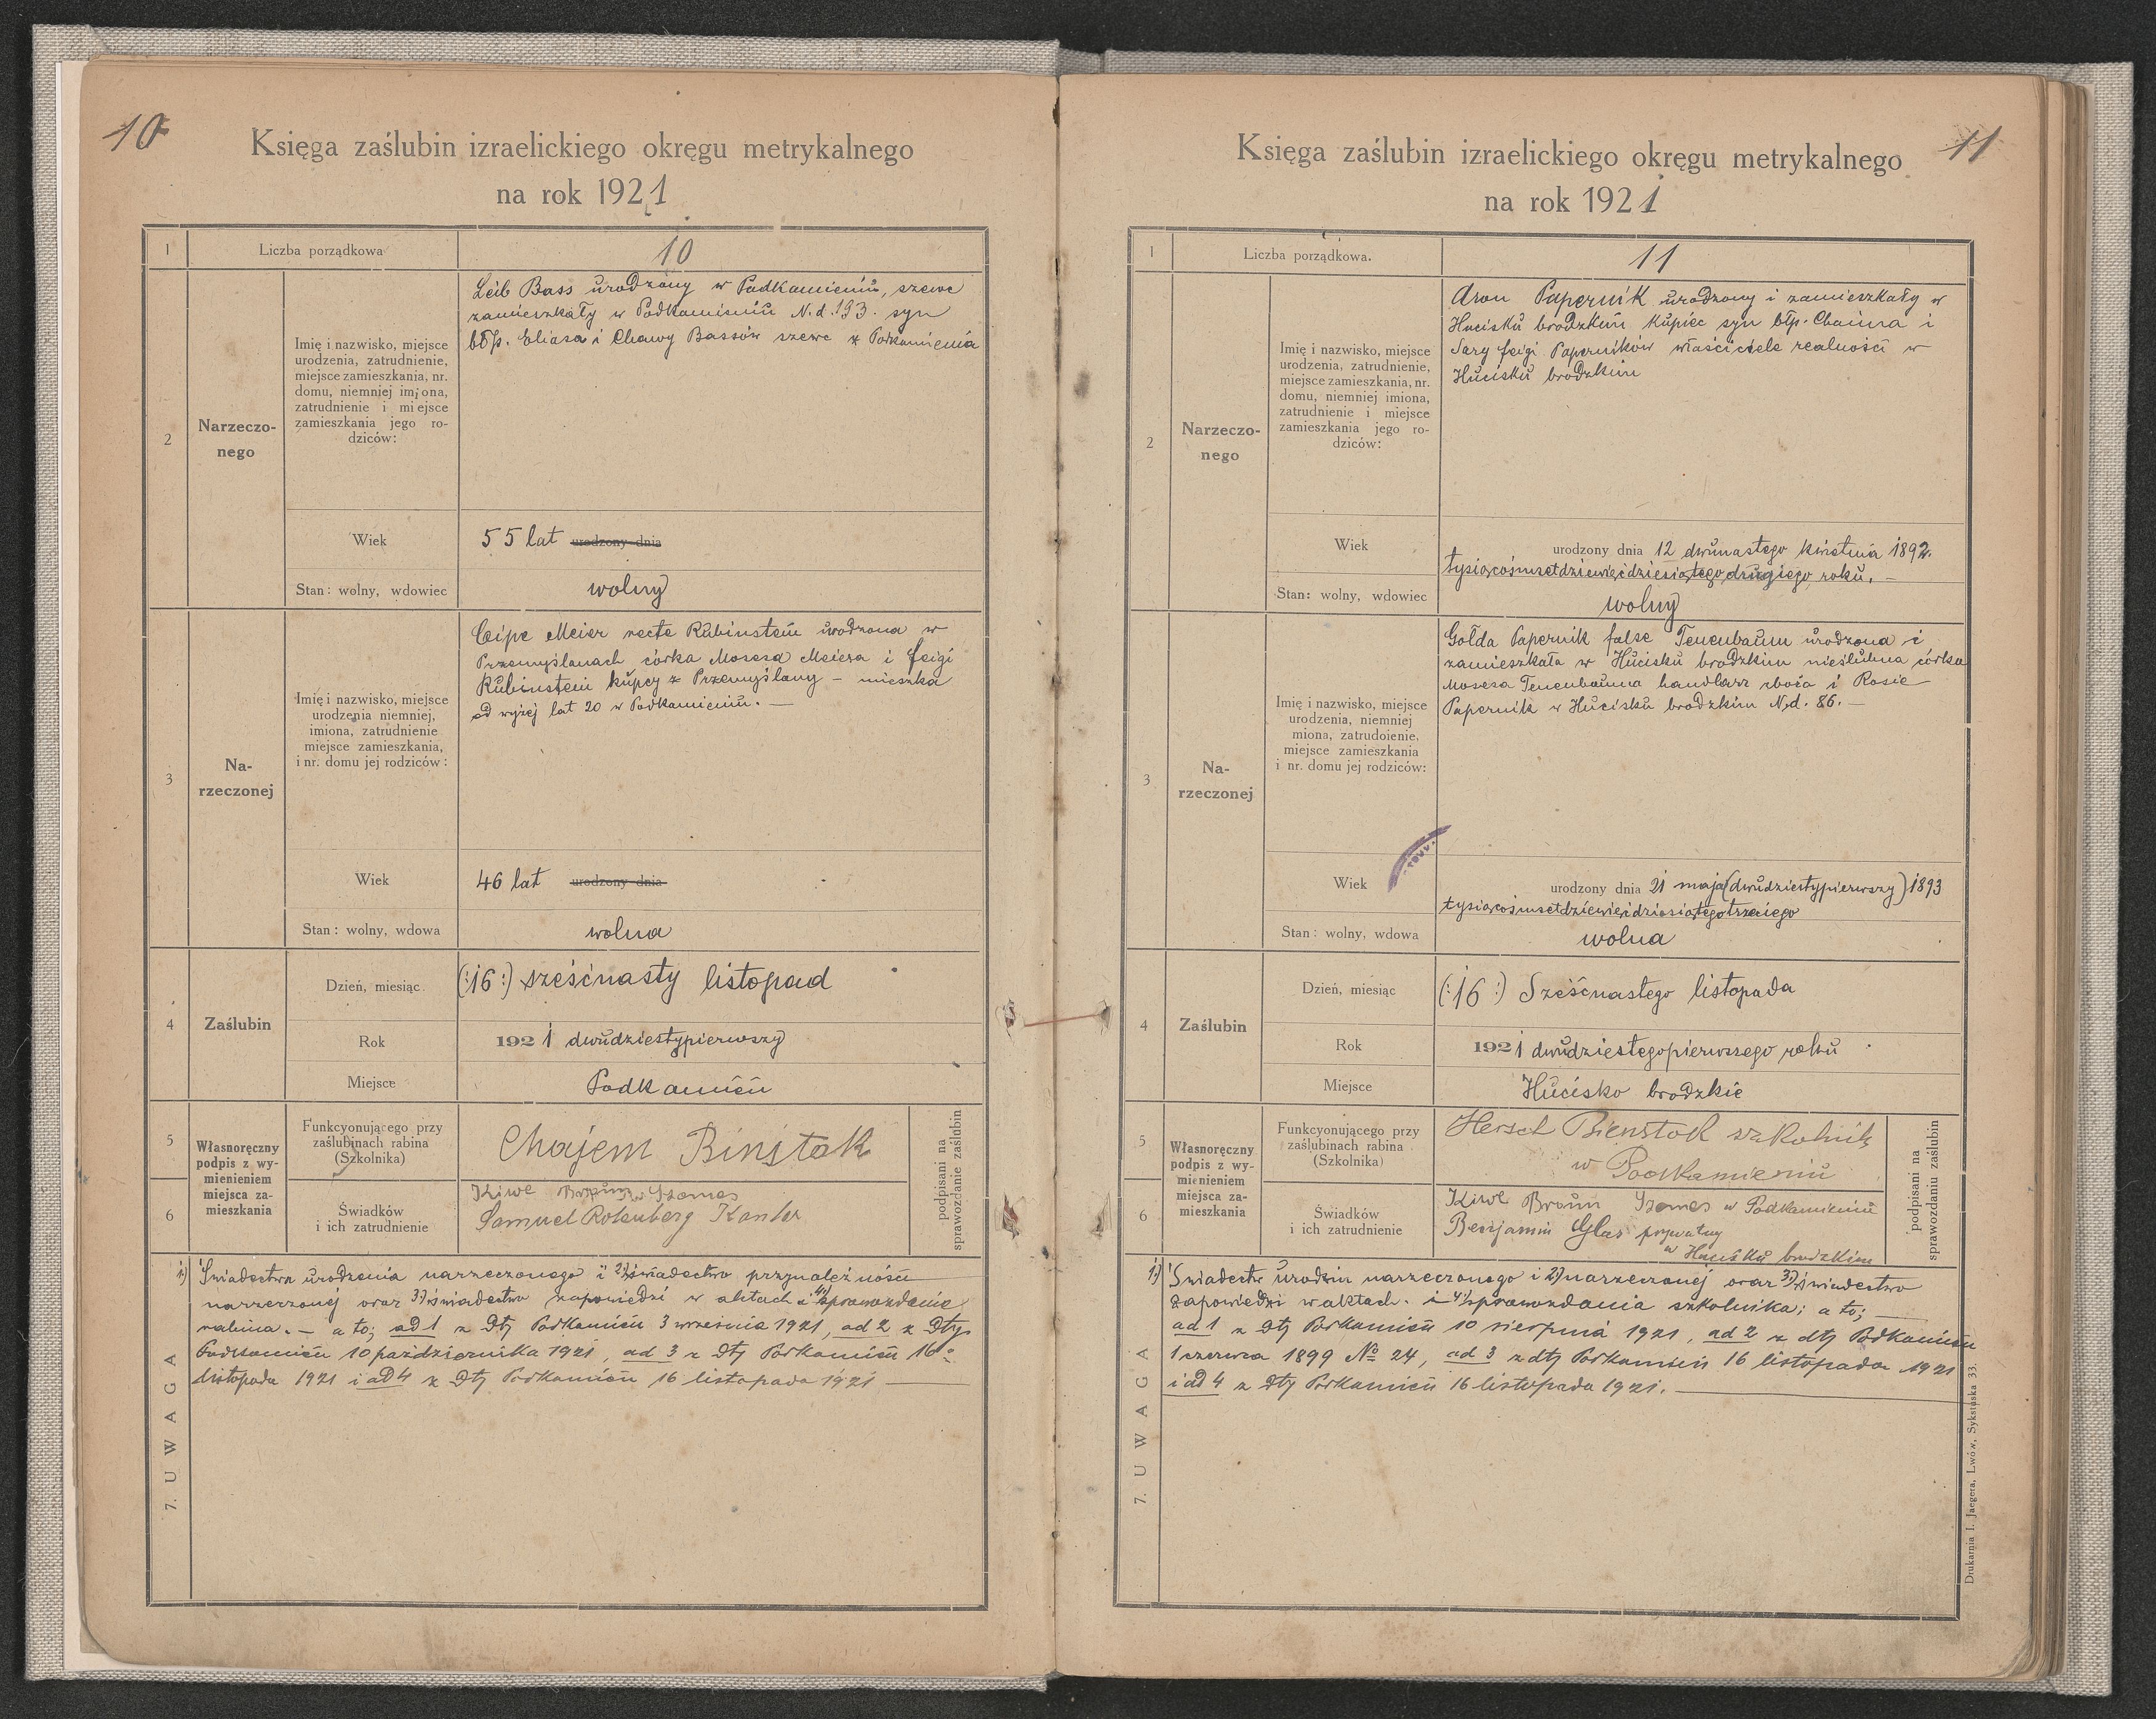 10
Księga zaślubin izraelickiego okręgu metrykalnego
na rok 1921
1
Liczba porządkowa
10
2
Narzeczo-
nego
Imię i nazwisko, miejsce
urodzenia, zatrudnienie,
miejsce zamieszkania, nr.
domu, niemniej imiona,
zatrudnienie i miejsce
zamieszkania jego ro-
dziców:
Leib Bass urodzony w Podkamieniu, szewc
zamieszkały w Podkamieniu N.d. 193. syn
błp. Eliasa i Chawy Bassów szewc z Podkamienia
Wiek
55 lat urodzony dnia
Stan: wolny, wdowiec
wolny
3
Na-
rzeczonej
Imię i nazwisko, miejsce
urodzenia niemniej,
imiona, zatrudnienie
miejsce zamieszkania,
i nr. domu jej rodziców:
Ceipe Meier recte Rubinstein urodzona w
Przemyślanach córka Mosesa Meiera i Feigi
Rubinstein kupcy z Przemyślany - mieszka
od wyżej lat 20 w Podkamieniu. —
Wiek
46 lat urodzony dnia
Stan: wolny, wdowa
wolna
4
Zaślubin
Dzień, miesiąc
(:16:) sześćnasty listopad
Rok
1921 dwudziestypierwszy
Miejsce
Podkamień
5
6
Własnoręczny
podpis z wy-
mienieniem
miejsca za-
mieszkania
Funkcyonującego przy
zaślubinach rabina
(Szkolnika)
Chajem Binsztok
Świadków
i ich zatrudnienie
Kiwe Szames
Samuel Rotenberg Kantor
podpisani na
sprawozdanie zaślubin
7. UWAGA
1) Świadectwa urodzenia narzeczonego i 2) świadectwo przynależności
narzeczonej oraz 3) świadectwo zapowiedzi w aktach i 4) sprawozdanie
rabina. — a to; ad 1 z dty Podkamień 3 września 1921, ad 2 z dty
Podkamień 10 października 1921, ad 3 z dty Podkamień 16
listopada 1921 i ad 4 z dty Podkamień 16 listopada 1921 —
11
Księga zaślubin izraelickiego okręgu metrykalnego
na rok 1921
1
Liczba porządkowa.
11
2
Narzeczo-
nego
Imię i nazwisko, miejsce
urodzenia, zatrudnienie,
miejsce zamieszkania, nr.
domu, niemniej imiona,
zatrudnienie i miejsce
zamieszkania jego ro-
dziców:
Aron Papernik urodzony i zamieszkały w
Hucisku brodzkim kupiec syn błp. Chaima i
Sary Feigi Paperników właściciele realności w
Hucisku brodzkim
Wiek
urodzony dnia 12 dwunastego kwietnia 1892.
tysiącośmsetdziewięćdziesiątego drugiego roku. —
Stan: wolny, wdowiec
wolny
3
Na-
rzeczonej
Imię i nazwisko, miejsce
urodzenia, niemniej
miona, zatrudoienie,
miejsce zamieszkania
i nr. domu jej rodziców:
Golda Papernik false Tenenbaum urodzona i
zamieszkała w Hucisku brodzkim nieślubna córka
Mosesa Tenenbauma handlarz zboża i Rosie
Papernik w Hucisku brodzkim N.d. 86. —
Wiek
urodzony dnia 21 maja (dwudziestypierwszy) 1893
tysiącośmsetdziewięćdziesiątegotrzeciego
Stan: wolny, wdowa
wolna
4
Zaślubin
Dzień, miesiąc
(:16:) Sześćnastego listopada
Rok
1921 dwudziestegopierwszego roku
Miejsce
Hucisko brodzkie
5
6
Własnoręczny
podpis z wy-
mienieniem
miejsca za-
mieszkania
Funkcyonującego przy
zaślubinach rabina
(Szkolnika)
Hersch Bienstok szkolnik
w Podkamieniu
Świadków
i ich zatrudnienie
Kiwe Braun Szames w Podkamieniu
Benjamin Glas prywatny
w Hucisku brodzkim
podpisani na
sprawozdaniu zaślubin
7. UWAGA
1) Świadectw urodzin narzeczonego i 2) narzeczonej oraz 3) świadectwo
zapowiedzi w aktach. i 4) sprawozdania szkolnika; a to; —
ad 1 z dty Podkamień 10 sierpnia 1921, ad 2 z dty Podkamień
1 czerwca 1899 No 24, ad 3 z dty Podkamień 16 listopada 1921
i ad 4 z dty Podkamień 16 listopada 1921. —
Drukarnia I. Jaegera, Lwów, Sykstuska 33.